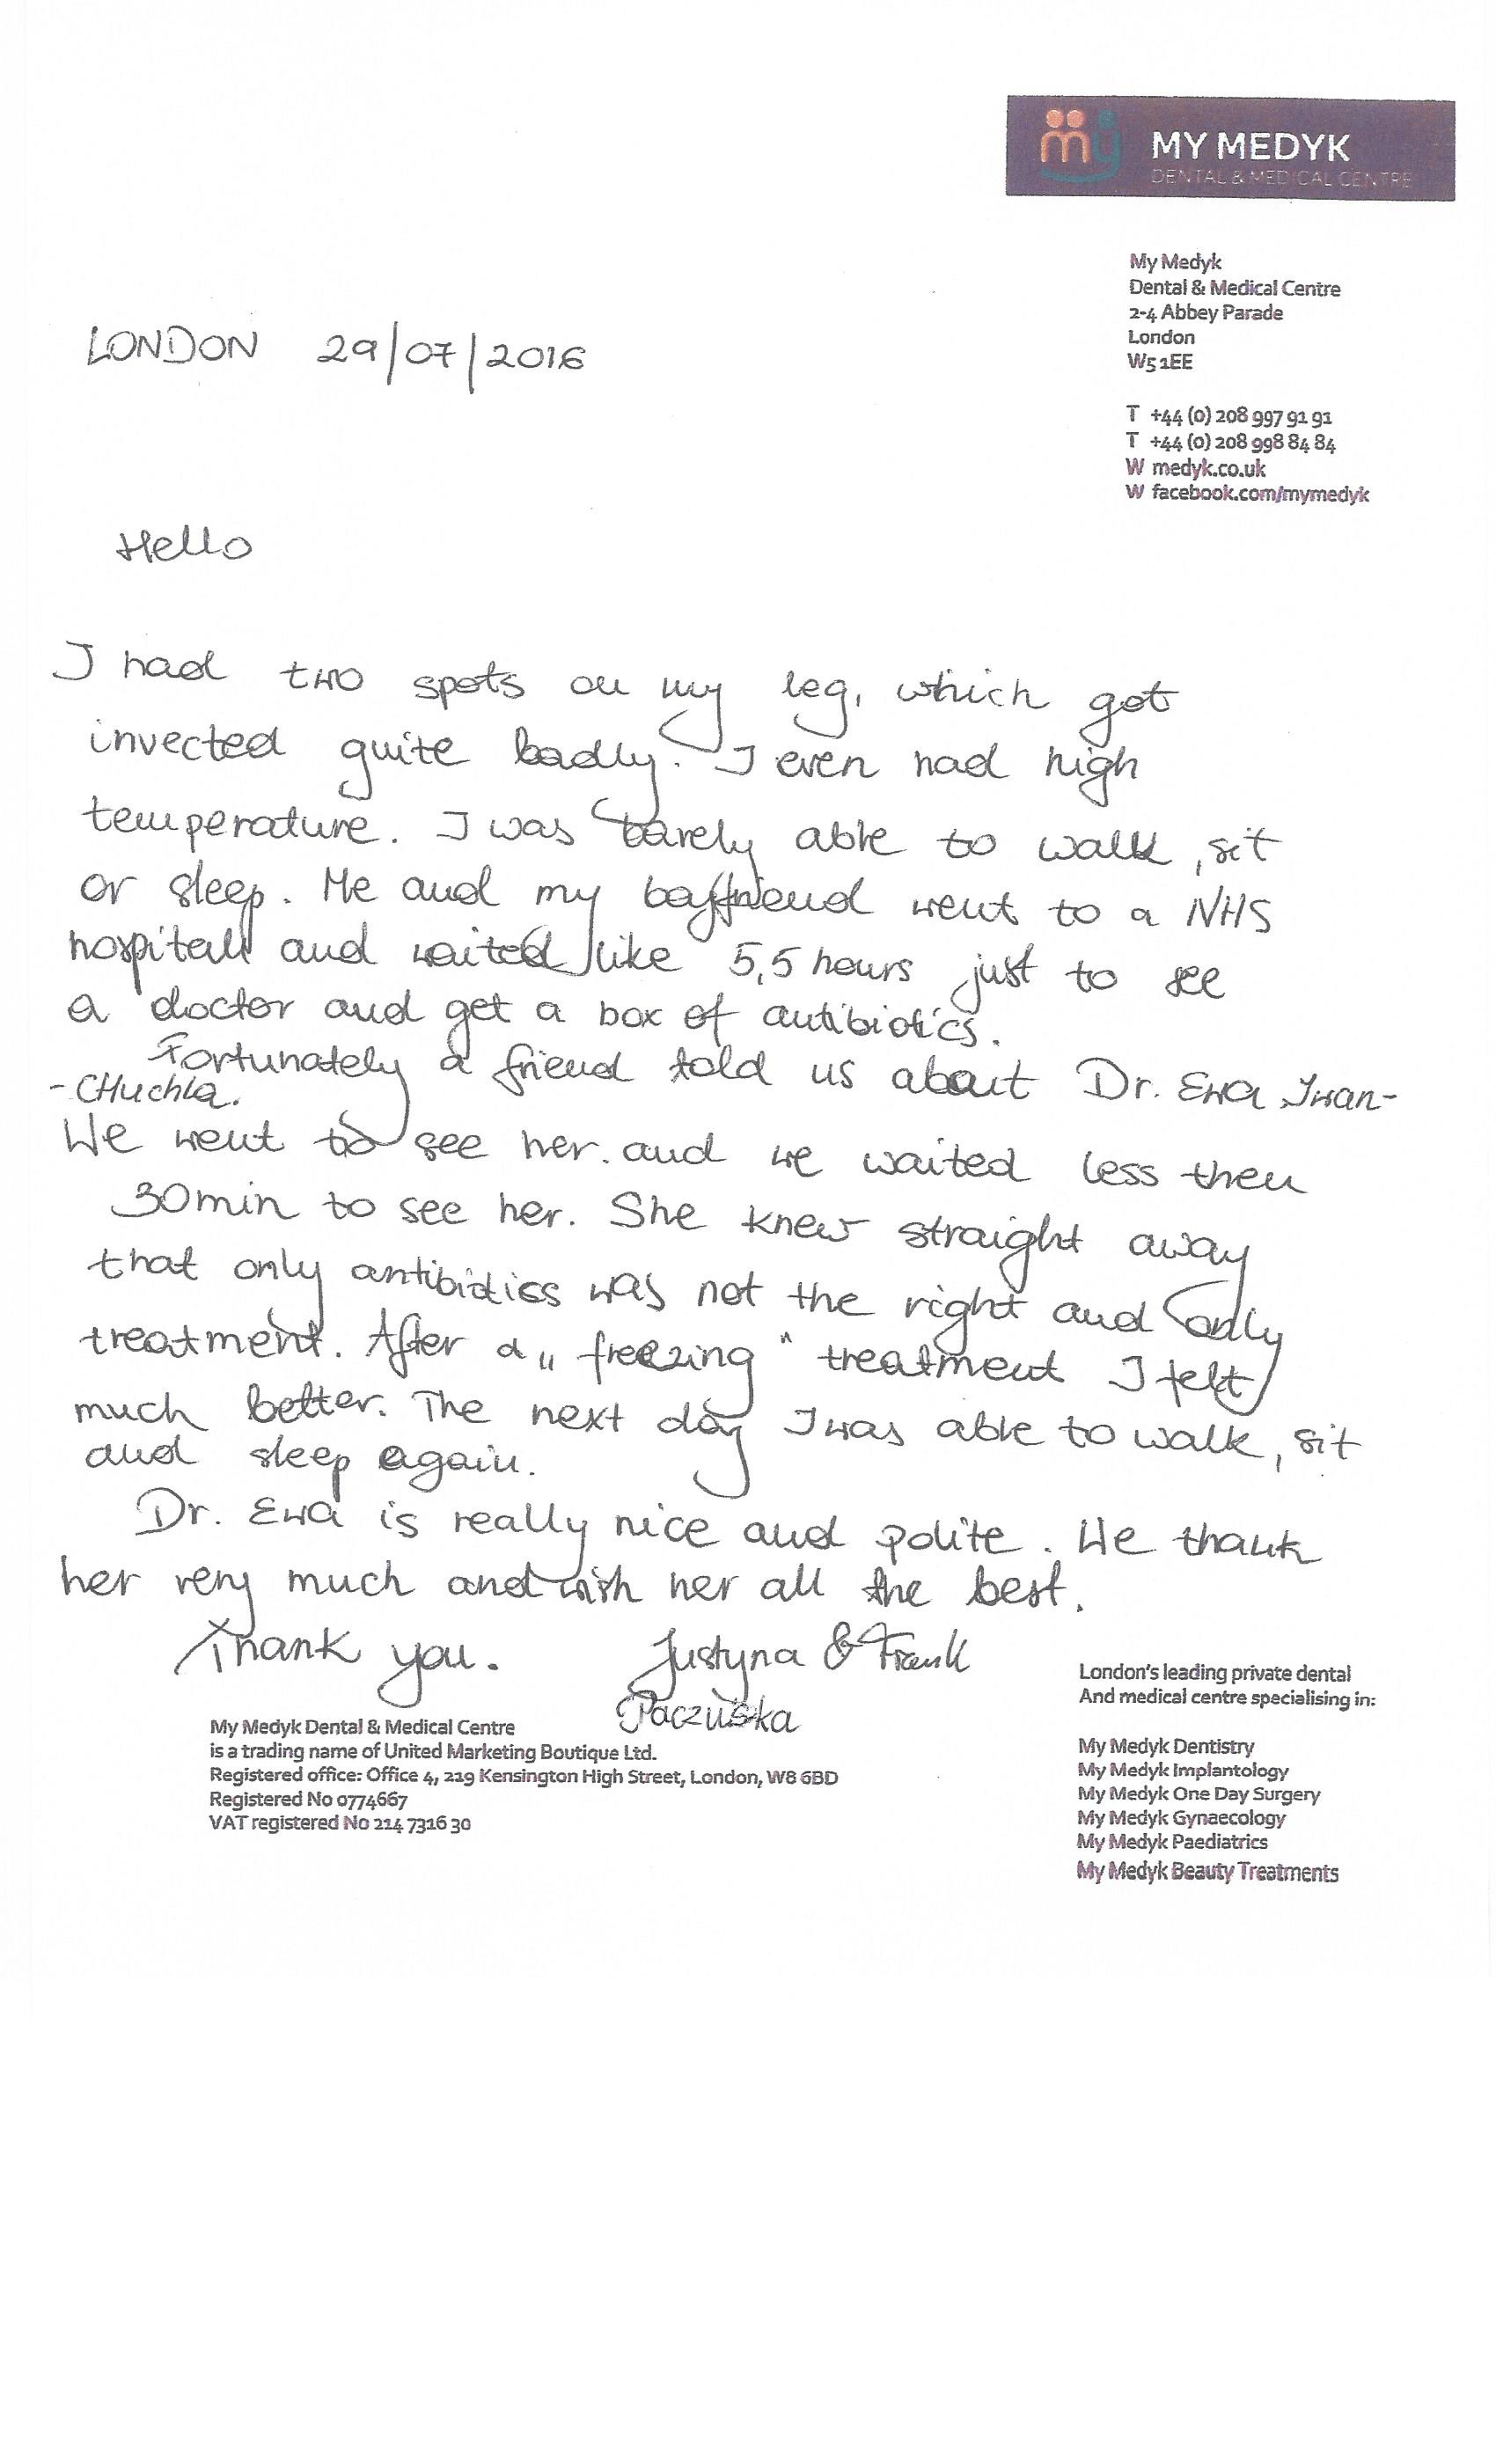 my MY MEDYK
DENTAL & MEDICAL CENTRE
My Medyk
Dental & Medical Centre
2-4 Abbey Parade
London
W5 1EE
T +44 (0) 208 997 91 91
T +44 (0) 208 998 84 84
W medyk.co.uk
W facebook.com/mymedyk
LONDON 29/07/2016
Hello
I had two spots on my leg, which got
invected quite badly. I even had high
temperature. I was barely able to walk, sit
or sleep. Me and my boyfriend went to a NHS
hospital and waited like 5,5 hours just to see
a doctor and get a box of antibiotics.
Fortunately a friend told us about Dr. Ewa Iwan-
-CHuchla.
We went to see her. and we waited less then
30min to see her. She knew straight away
that only antibiotics was not the right and only
treatment. After a „freezing" treatment I felt
much better. The next day I was able to walk, sit
and sleep again.
Dr. Ewa is really nice and polite. We thank
her very much and wish her all the best.
Thank you. Justyna & Frank
Paczuska
My Medyk Dental & Medical Centre
is a trading name of United Marketing Boutique Ltd.
Registered office: Office 4, 219 Kensington High Street, London, W8 6BD
Registered No 0774667
VAT registered No 214 7316 30
London's leading private dental
And medical centre specialising in:
My Medyk Dentistry
My Medyk Implantology
My Medyk One Day Surgery
My Medyk Gynaecology
My Medyk Paediatrics
My Medyk Beauty Treatments